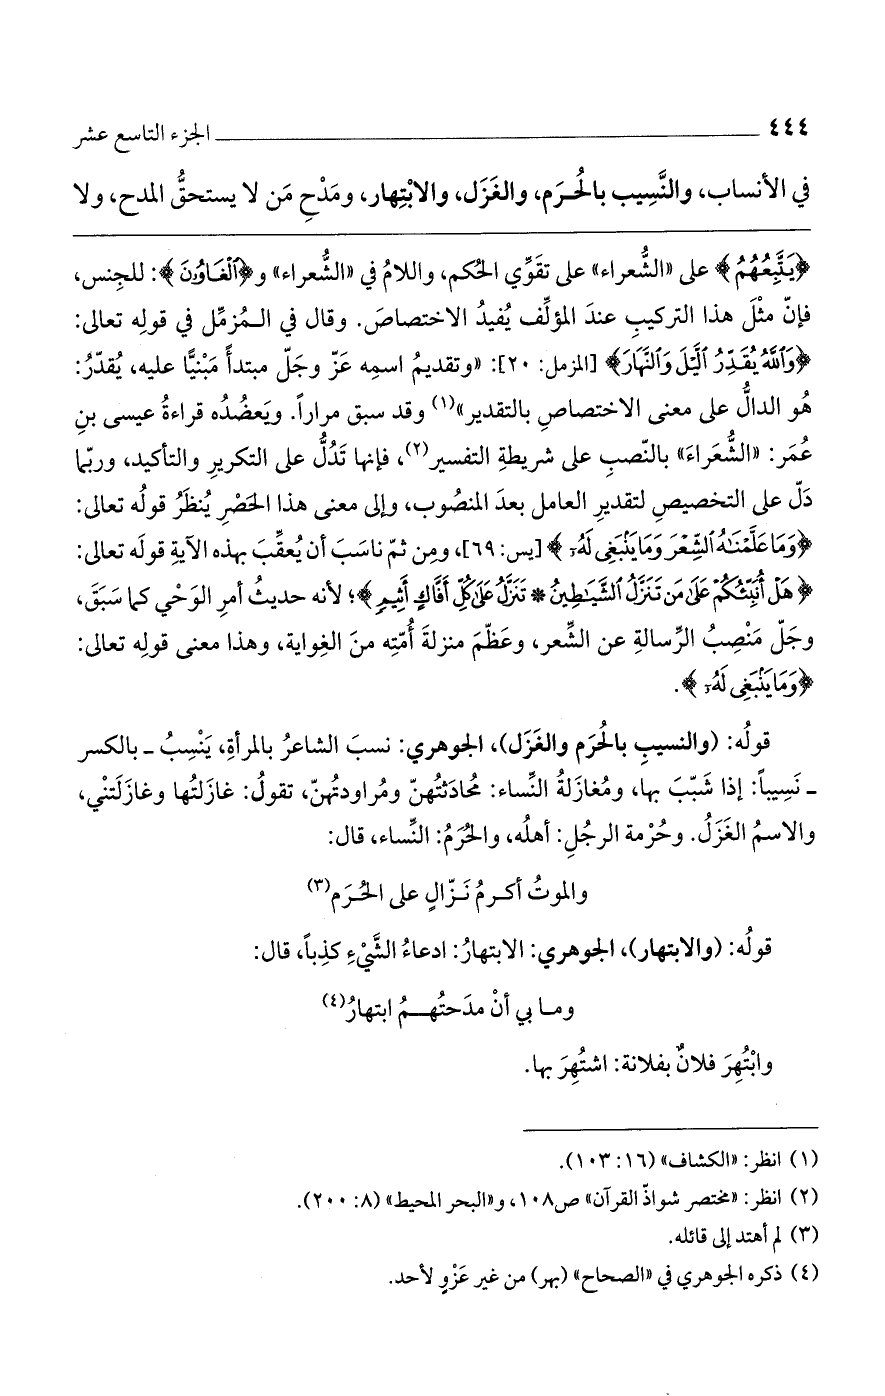 ٤٤٤ الجزء التاسع عشر
في الأنساب، والنَّسِيب بالحُرَم، والغَزَل، والابْتِهار، ومَدْحِ مَن لا يستحقُّ المدح، ولا
﴿يَتَّبِعُهُمُ﴾ على «الشُّعراء» على تقَوِّي الحُكم، واللامُ في «الشُّعراء» و﴿ٱلْغَاوُۥنَ﴾: للجِنس،
فإنّ مثْلَ هذا التركيبِ عندَ المؤلِّف يُفيدُ الاختصاصَ. وقال في المُزمِّل في قولِه تعالى:
﴿وَٱللَّهُ يُقَدِّرُ ٱلَّيْلَ وَٱلنَّهَارَ﴾ [المزمل: ٢٠]: «وتقديمُ اسمِه عَزّ وجَلّ مبتدأً مَبْنيًّا عليه، يُقدّرُ:
هُو الدالُّ على معنى الاختصاصِ بالتقدير»(١) وقد سبق مراراً. ويَعضُدُه قراءةُ عيسى بنِ
عُمَر: «الشُّعَراءَ» بالنّصبِ على شريطةِ التفسير(٢)، فإنها تَدُلُّ على التكريرِ والتأكيد، وربّما
دَلّ على التخصيصِ لتقديرِ العامل بعدَ المنصُوب، وإلى معنى هذا الحَصْرِ يُنظَرُ قولُه تعالى:
﴿وَمَا عَلَّمْنَٰهُ ٱلشِّعْرَ وَمَا يَنۢبَغِى لَهُۥٓ﴾ [يس: ٦٩]، ومِن ثمّ ناسَبَ أن يُعقِّبَ بهذه الآيةِ قولَه تعالى:
﴿هَلْ أُنَبِّئُكُمْ عَلَىٰ مَن تَنَزَّلُ ٱلشَّيَٰطِينُ * تَنَزَّلُ عَلَىٰ كُلِّ أَفَّاكٍ أَثِيمٍ﴾؛ لأنه حديثُ أمرِ الوَحْي كما سَبَقَ،
وجَلّ مَنْصِبُ الرِّسالةِ عن الشِّعر، وعَظّمَ منزلةَ أُمّتِه منَ الغِواية، وهذا معنى قولِه تعالى:
﴿وَمَا يَنۢبَغِى لَهُۥٓ﴾.
قولُه: (والنسيبِ بالحُرَم والغَزَل)، الجوهري: نسبَ الشاعرُ بالمرأةِ، يَنْسِبُ ـ بالكسر
ـ نَسِيباً: إذا شَبّبَ بها، ومُغازَلةُ النِّساء: مُحادَثتُهنّ ومُراودتُهنّ، تقولُ: غازَلتُها وغازَلَتنْي،
والاسمُ الغَزَلُ. وحُرْمة الرجُلِ: أهلُه، والحُرَمُ: النِّساء، قال:
والموتُ أكرمُ نَزّالٍ على الحُرَم(٣)
قولُه: (والابتهار)، الجوهري: الابتهارُ: ادعاءُ الشَّيْءِ كذِباً، قال:
وما بي أنْ مدَحتُهمُ ابتهارُ(٤)
وابْتُهِرَ فلانٌ بفلانة: اشتُهِرَ بها.
(١) انظر: «الكشاف» (١٦: ١٠٣).
(٢) انظر: «مختصر شواذّ القرآن» ص١٠٨، و«البحر المحيط» (٨: ٢٠٠).
(٣) لم أهتد إلى قائله.
(٤) ذكره الجوهري في «الصحاح» (بهر) من غير عَزْوٍ لأحد.